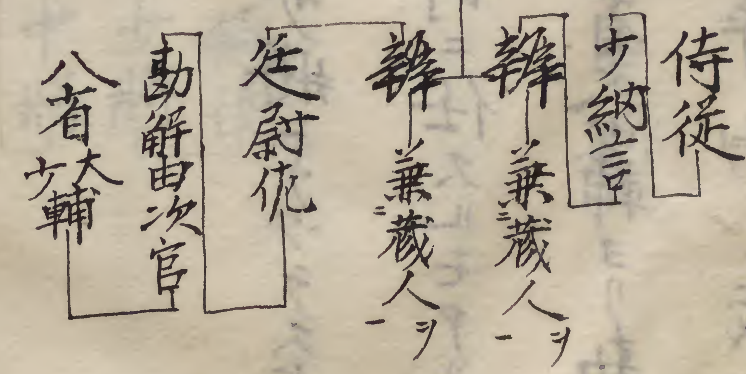 侍従
少納言
辨兼蔵人ヲ二一
辨兼蔵人ヲ二一
廷尉佐
勘解由次官
八省大少輔